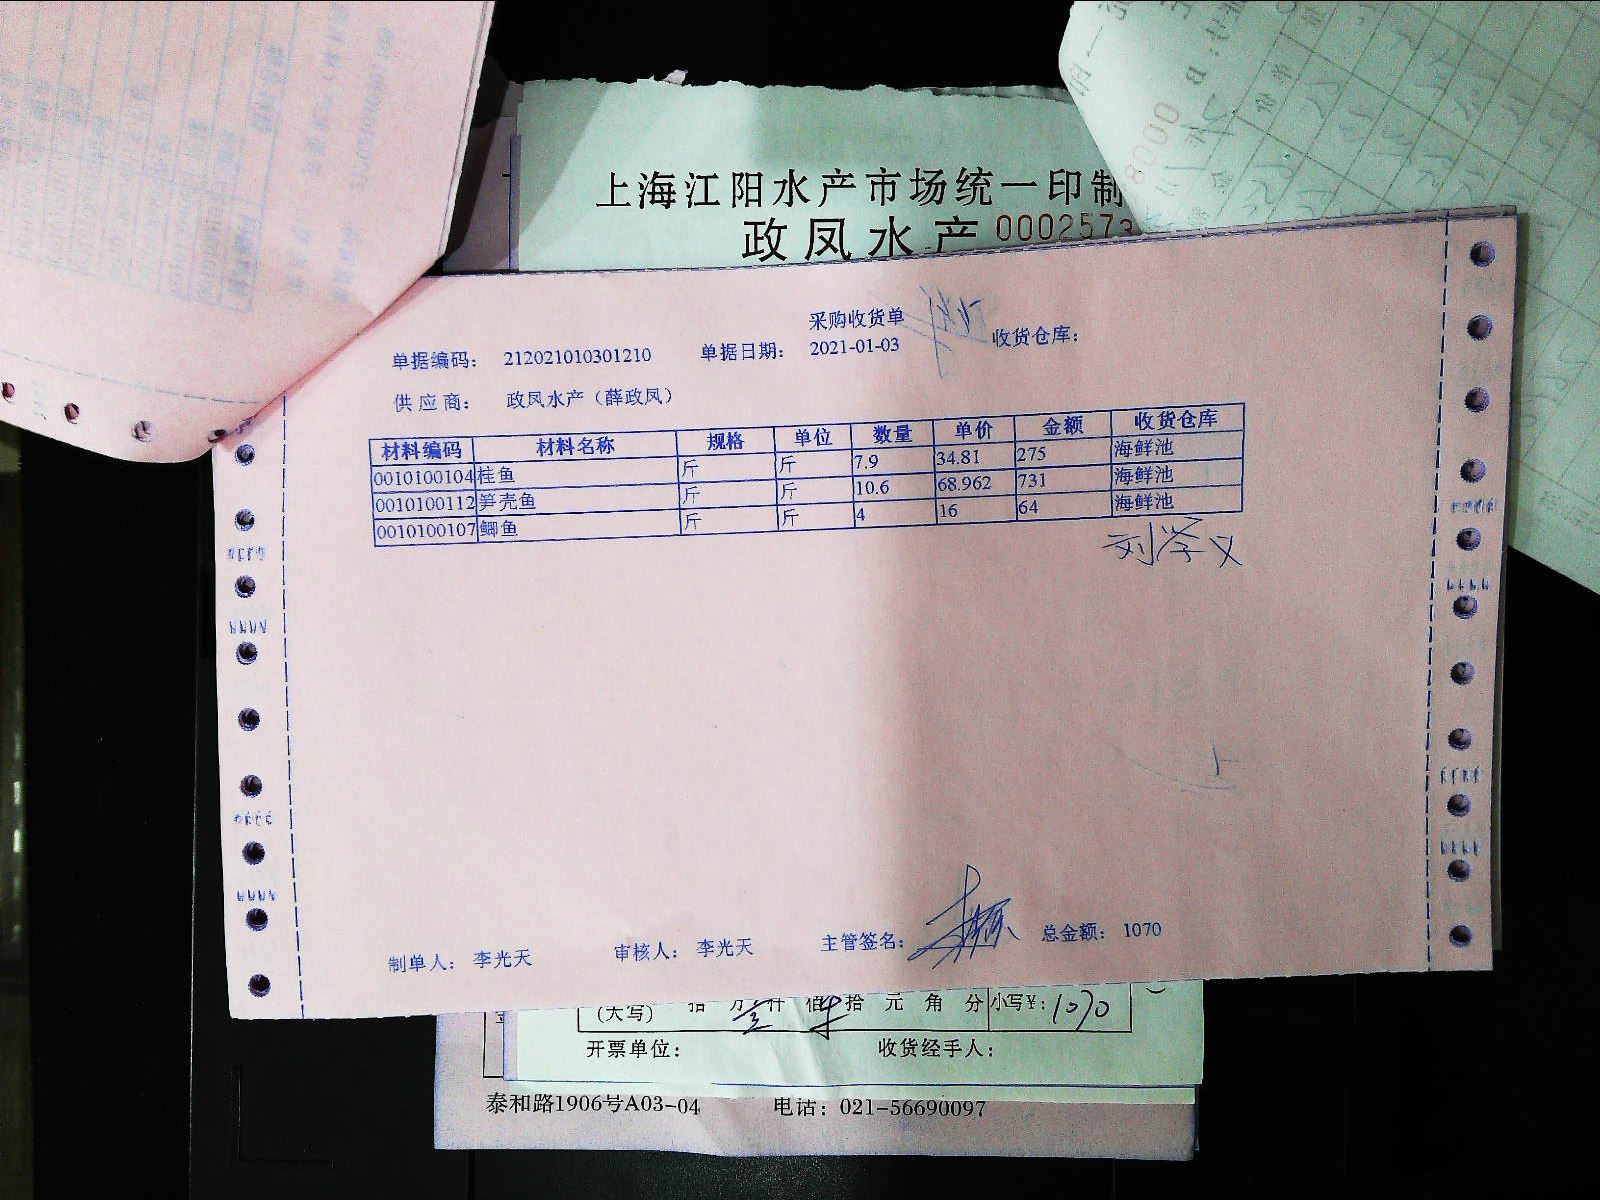 上海江阳水产市场统一印制
政凤水产 0002573
采购收货单
单据编码: 212021010301210 单据日期: 2021-01-03 收货仓库:
供应商: 政凤水产（薛政凤）
材料编码 材料名称 规格 单位 数量 单价 金额 收货仓库
0010100104 桂鱼 斤 斤 7.9 34.81 275 海鲜池
0010100112 笋壳鱼 斤 斤 10.6 68.962 731 海鲜池
0010100107 鲫鱼 斤 斤 4 16 64 海鲜池
刘学义
制单人: 李光天 审核人: 李光天 主管签名: 总金额: 1070
(大写) 拾 万 仟 佰 拾 元 角 分 小写¥: 1070
开票单位: 收货经手人:
泰和路1906号A03-04 电话: 021-56690097